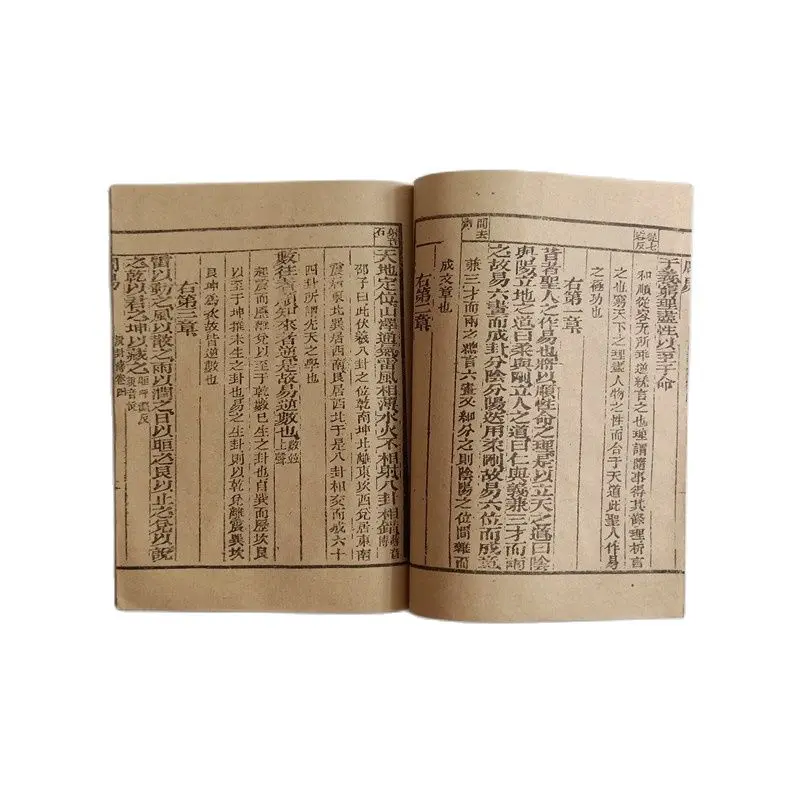 于義窮理盡性以至于命
和順從容无所乖逆統言之也理謂隨事得其條理析言
之也窮天下之理盡人物之性而合于天道此聖人作易
之極功也
右第一章
昔者聖人之作易也將以順性命之理是以立天之道曰陰
與陽立地之道曰柔與剛立人之道曰仁與義兼三才而兩
之故易六畫而成卦分陰分陽迭用柔剛故易六位而成章
間去聲
兼三才而兩之總言六畫又細分之則陰陽之位間雜而
成文章也
右第二章
天地定位山澤通氣雷風相薄水火不相射八卦相錯
邵子曰此伏羲八卦之位乾南坤北離東坎西兌居東南
震居東北巽居西南艮居西北于是八卦相交而成六十
四卦所謂先天之學也
數往者順知來者逆是故易逆數也數並上聲
起震而歷離兌以至于乾數已生之卦也自巽而歷坎艮
以至于坤推未生之卦也易之生卦則以乾兌離震巽坎
艮坤爲次故皆逆數也
右第三章
雷以動之風以散之雨以潤之日以晅之艮以止之兌以說
之乾以君之坤以藏之
周易
說卦傳卷四